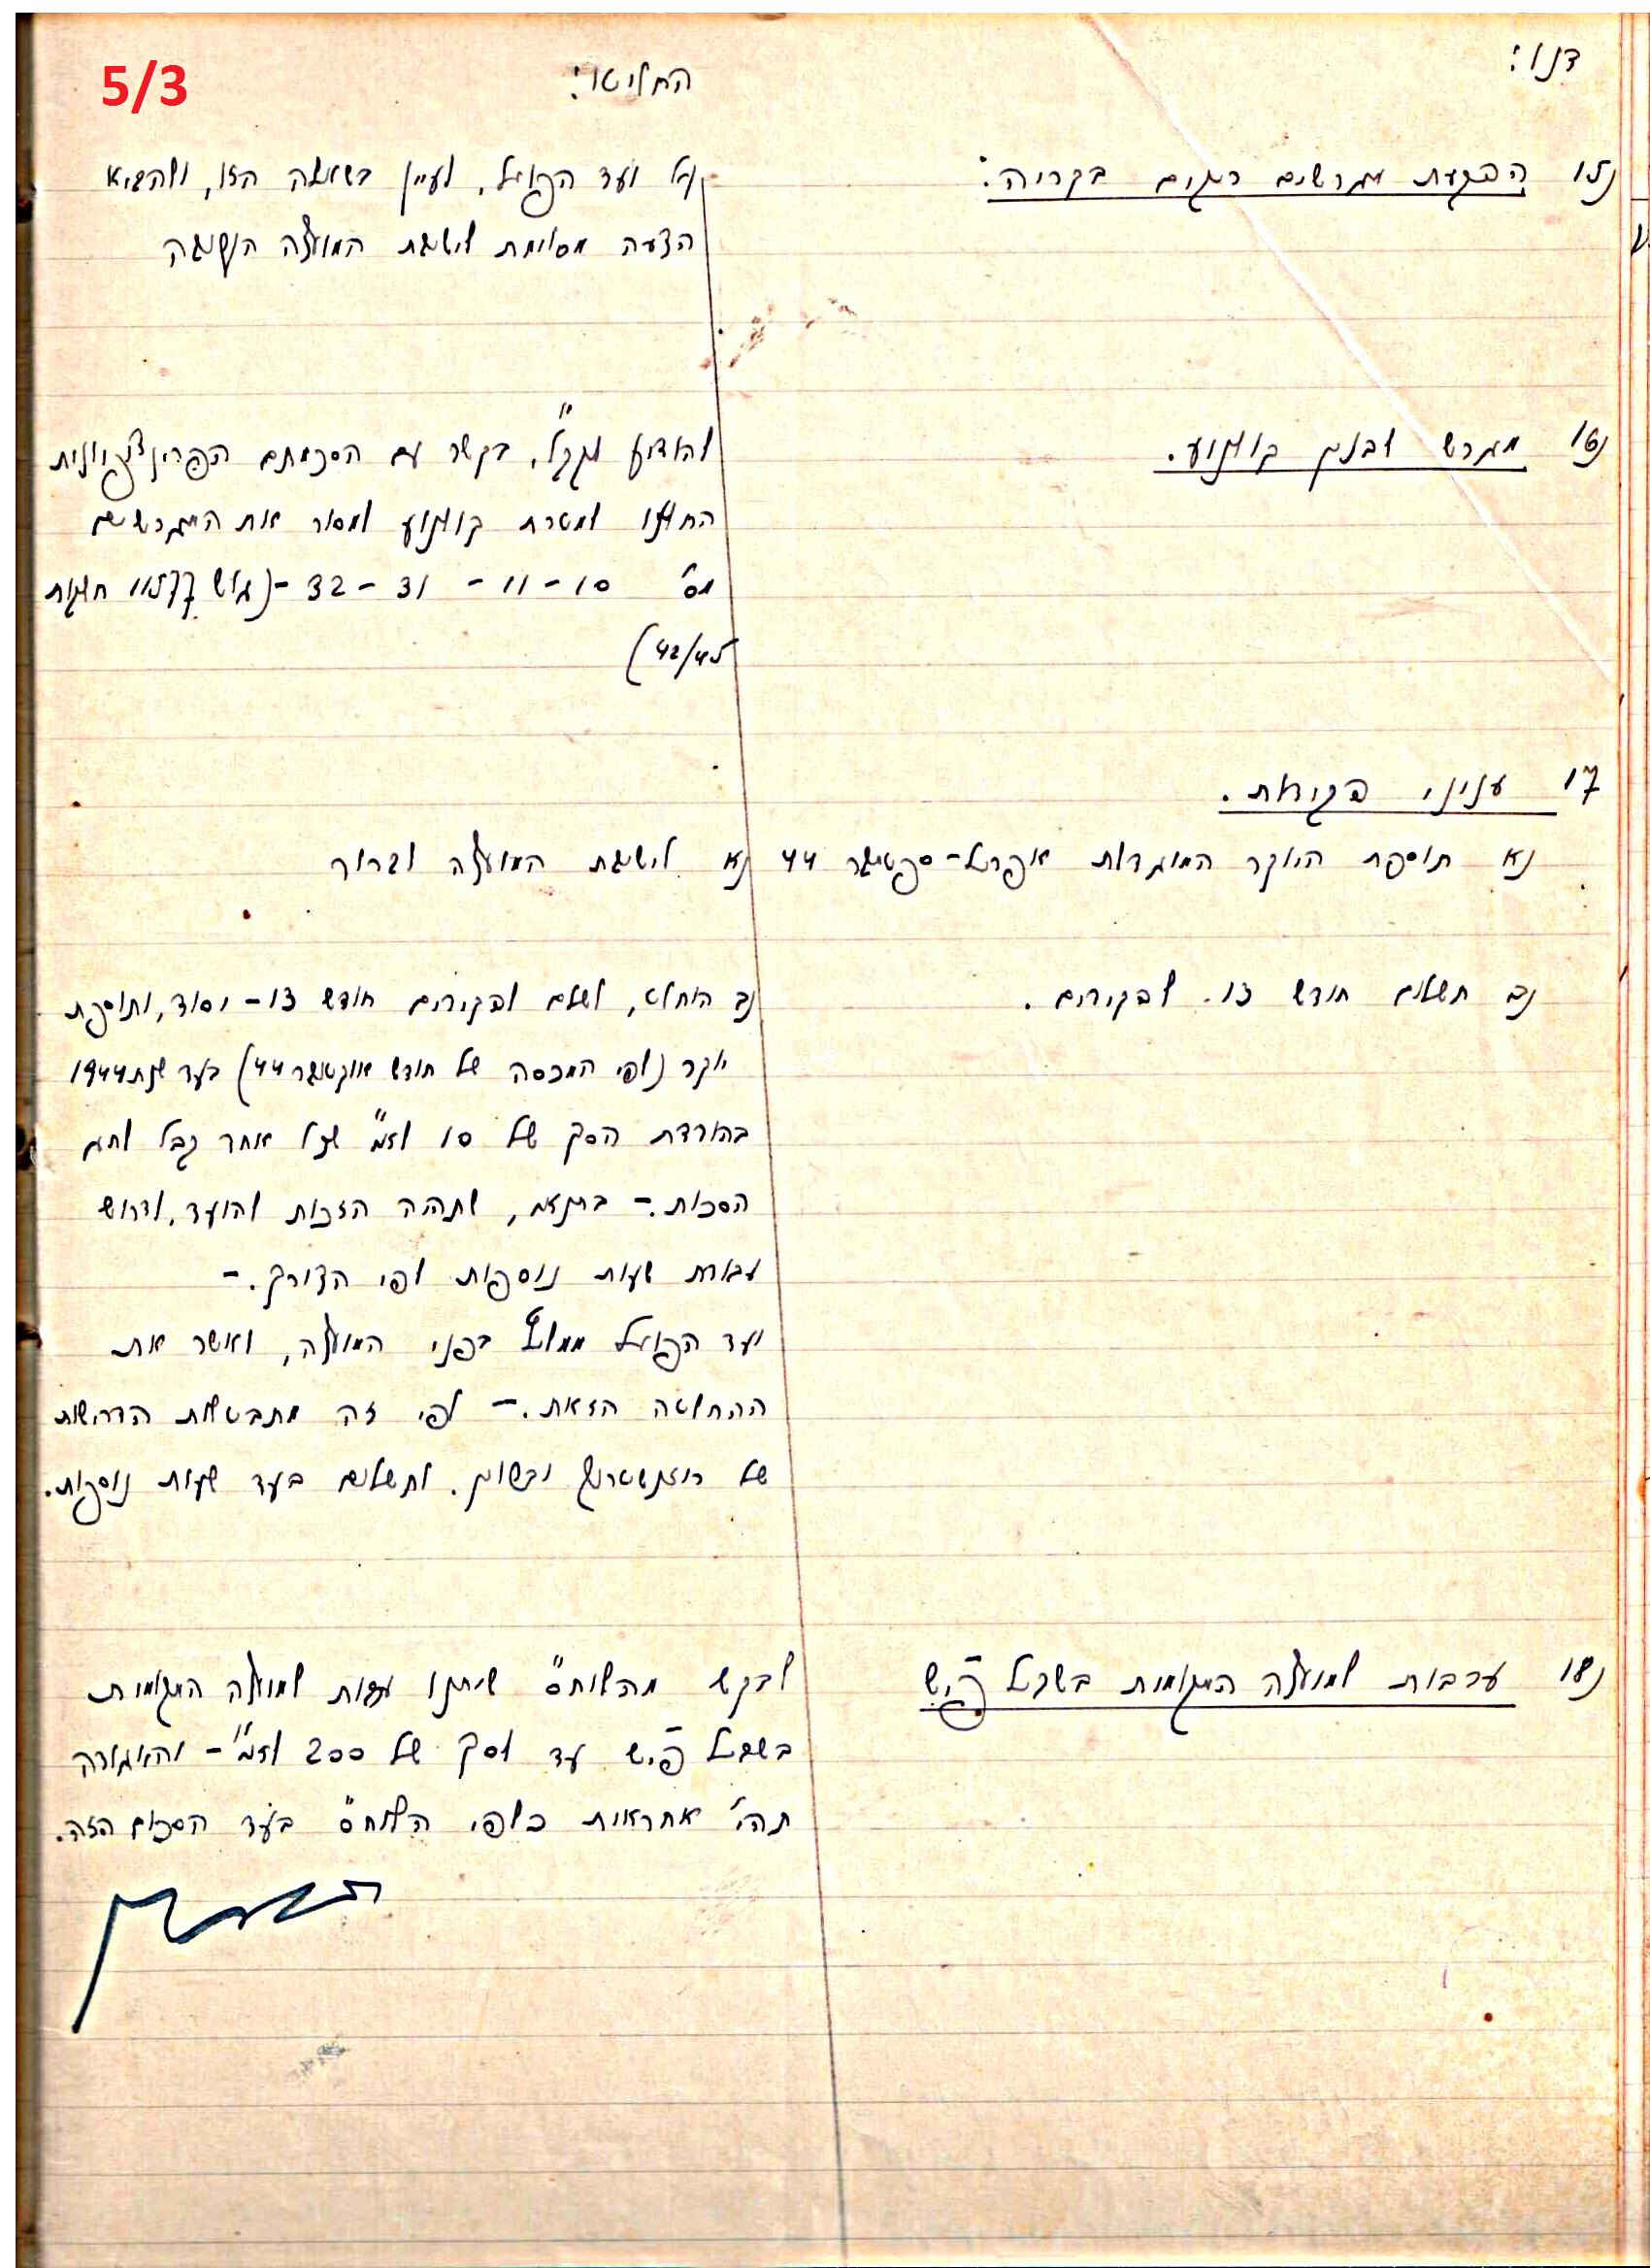 5/3
דנו:
החליטו:
15) הפקעת מגרשים ריקים בקריה:
על ועד הפועל, לעיין בשאלה הזו, ולהביא
הצעה מסוימת לישיבת המועצה הקרובה
16) מגרש לבנין קולנוע.
להודיע לקק"ל, בקשר עם הסכמתם הפרינציפיונית
החלטנו למטרת קולנוע למסור את המגרשים
מס' 10 - 11 - 31 - 32 - (גוש חלקות
42/45)
17) עניני פקידות.
א) תוספת היוקר המוגדלת אפריל - ספטמבר 44
א) לישיבת המועצה לברור
ב) תשלום חודש 13. לפקידים.
ב) הוחלט, לשלם לפקידים חודש 13 - יסוד, ותוספת
יוקר (לפי המכסה של חודש אוקטובר 44) בעד שנת 1944
בהורדת הסך של 10 לא"י שכל אחד קבל לחג
הסכות. - בתנאי, שתהיה הזכות להועד, לדרוש
עבודת שעות נוספות לפי הצורך. -
ועד הפועל ממליץ בפני המועצה, לאשר את
ההחלטה הזאת. - לפי זה מתבטלות הדרישות
של רוזנשטרוך לתשלום בעד שעות נוספות.
18) ערבות למועצה המקומית בשביל
לבקש מהלוח"ם שיתנו ערבות למועצה המקומית
בשביל עד לסך של 200 לא"י - והאגודה
תהי' אחראית כלפי הלוח"ם בעד הסכום הזה.